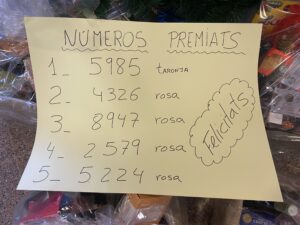 NÚMEROS PREMIATS
1_ 5985 TARONJA
2_ 4326 rosa
3_ 8947 rosa
4_ 2579 rosa
5_ 5224 rosa
Felicitats